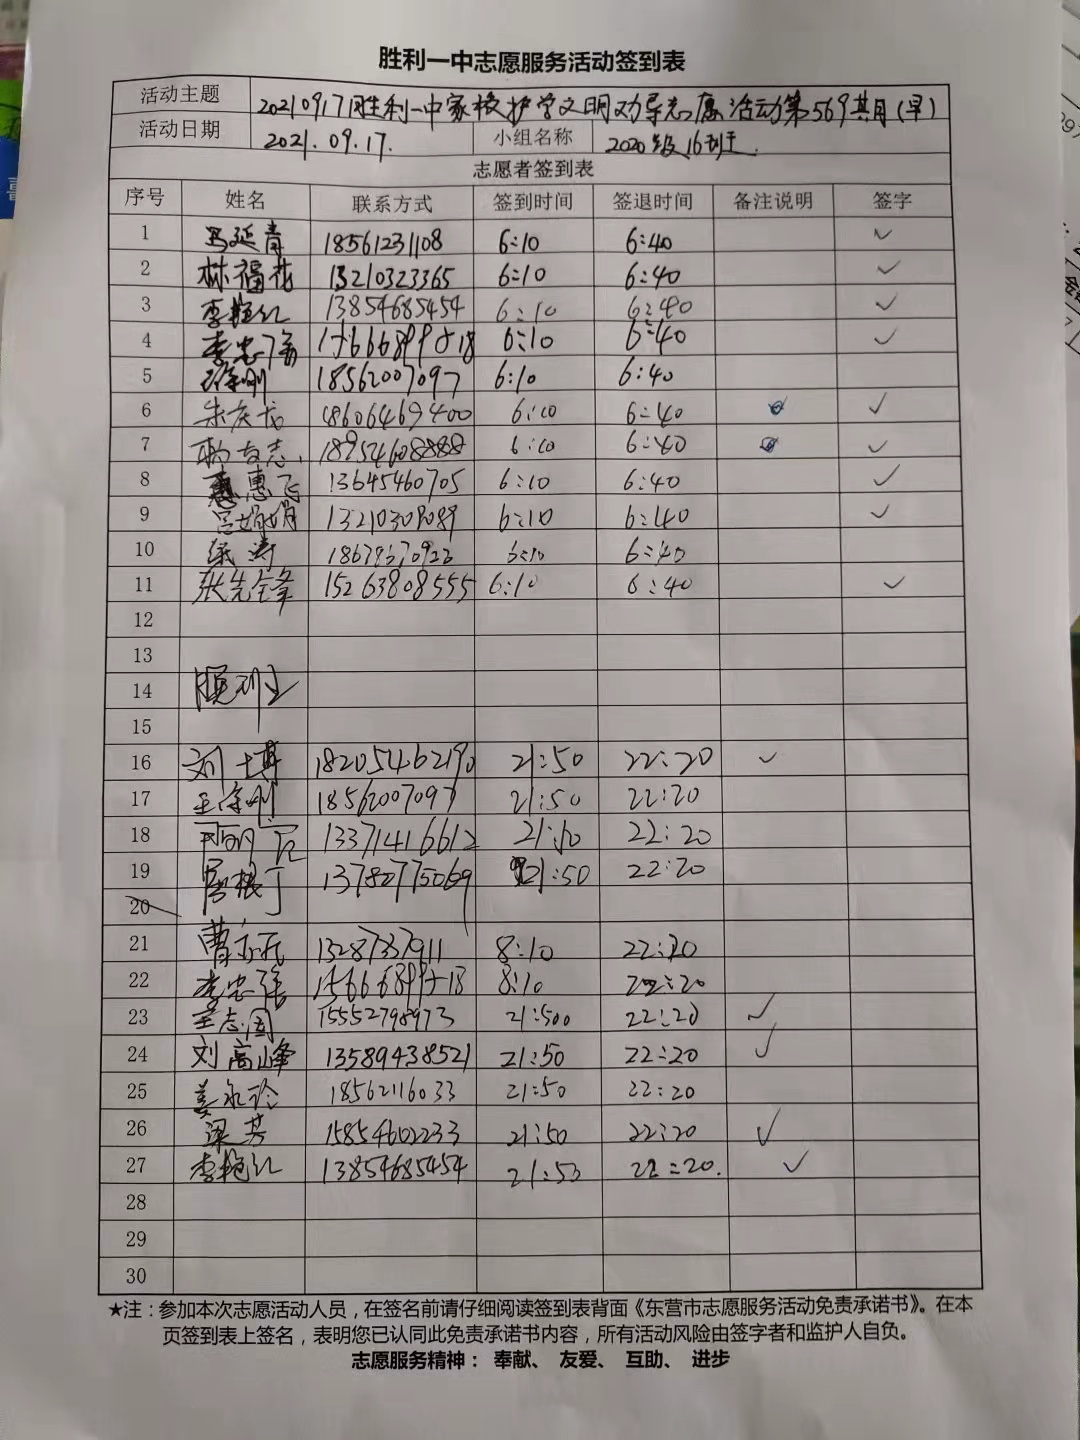 胜利一中志愿服务活动签到表
活动主题 20210917胜利一中家校护学文明劝导志愿活动第569期(早)
活动日期 2021.09.17. 小组名称 2020级16班
志愿者签到表
序号 姓名 联系方式 签到时间 签退时间 备注说明 签字
1 马延青 18561231108 6:10 6:40 ✓
2 林福花 13210323365 6:10 6:40 ✓
3 李艳红 13854685454 6:10 6:40 ✓
4 李忠 6:10 6:40 ✓
5 18562007097 6:10 6:40
6 朱庆龙 18606469400 6:10 6:40 ✓
7 杨友志 18954608888 6:10 6:40 ✓
8 惠飞 13645460705 6:10 6:40 ✓
9 吕娟娟 13210309089 6:10 6:40 ✓
10 6:10 6:40
11 张先全峰 15263808555 6:10 6:40 ✓
12
13
14
15
16 刘博 18205462190 21:50 22:20 ✓
17 18562007097 21:50 22:20
18 13371416612 22:20
19 13782775069 21:50 22:20
20
21 曹 13287337911 8:10 22:20
22 李忠 8:10 22:20
23 王志国 15552798973 21:500 22:20 ✓
24 刘高峰 13589438521 21:50 22:20 ✓
25 姜永 18562116033 21:50 22:20
26 梁芳 15854602233 21:50 22:20 ✓
27 李艳红 13854685454 21:53 22:20. ✓
28
29
30
★注：参加本次志愿活动人员，在签名前请仔细阅读签到表背面《东营市志愿服务活动免责承诺书》。在本
页签到表上签名，表明您已认同此免责承诺书内容，所有活动风险由签字者和监护人自负。
志愿服务精神： 奉献、 友爱、 互助、 进步